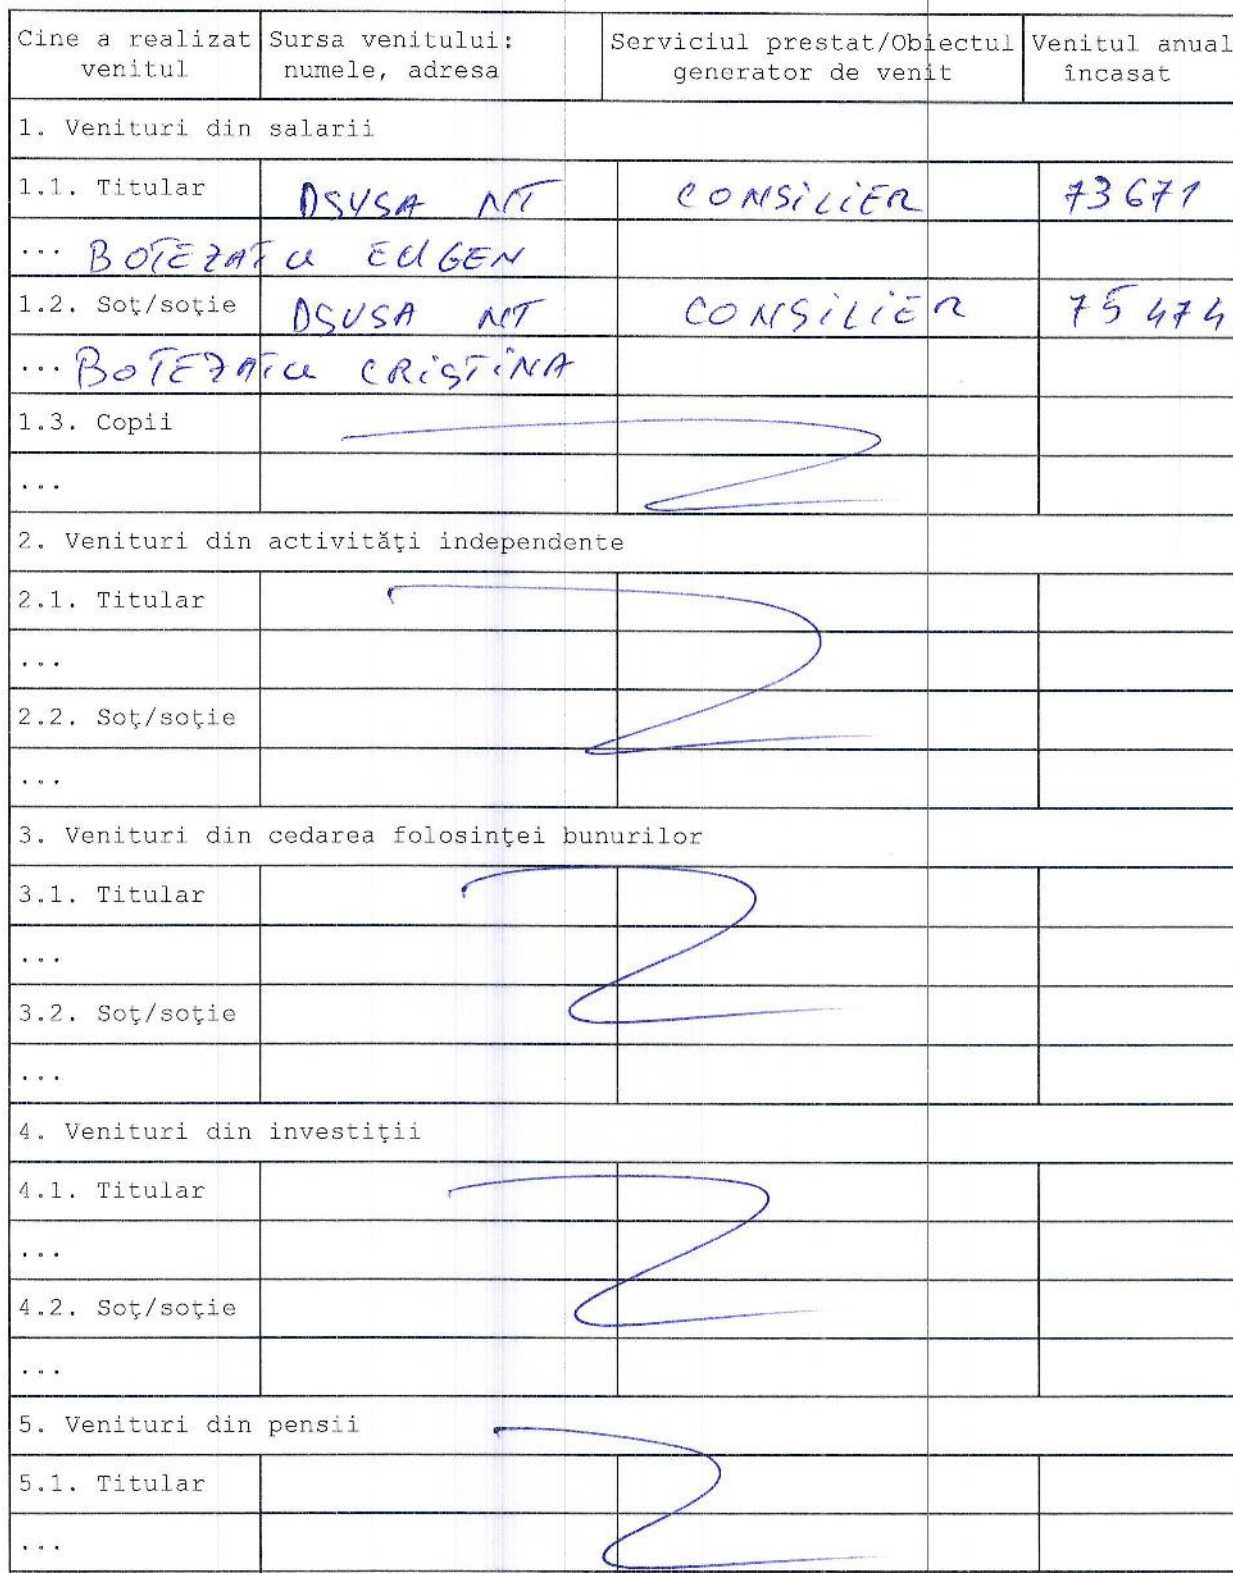 Cine a realizat venitul Sursa venitului: numele, adresa Serviciul prestat/Obiectul generator de venit Venitul anual încasat
1. Venituri din salarii
1.1. Titular DSVSA NT CONSILIER 73671
... BOTEZATU EUGEN
1.2. Soţ/soţie DSVSA NT CONSILIER 75474
... BOTEZATU CRISTINA
1.3. Copii
...
2. Venituri din activităţi independente
2.1. Titular
...
2.2. Soţ/soţie
...
3. Venituri din cedarea folosinţei bunurilor
3.1. Titular
...
3.2. Soţ/soţie
...
4. Venituri din investiţii
4.1. Titular
...
4.2. Soţ/soţie
...
5. Venituri din pensii
5.1. Titular
...